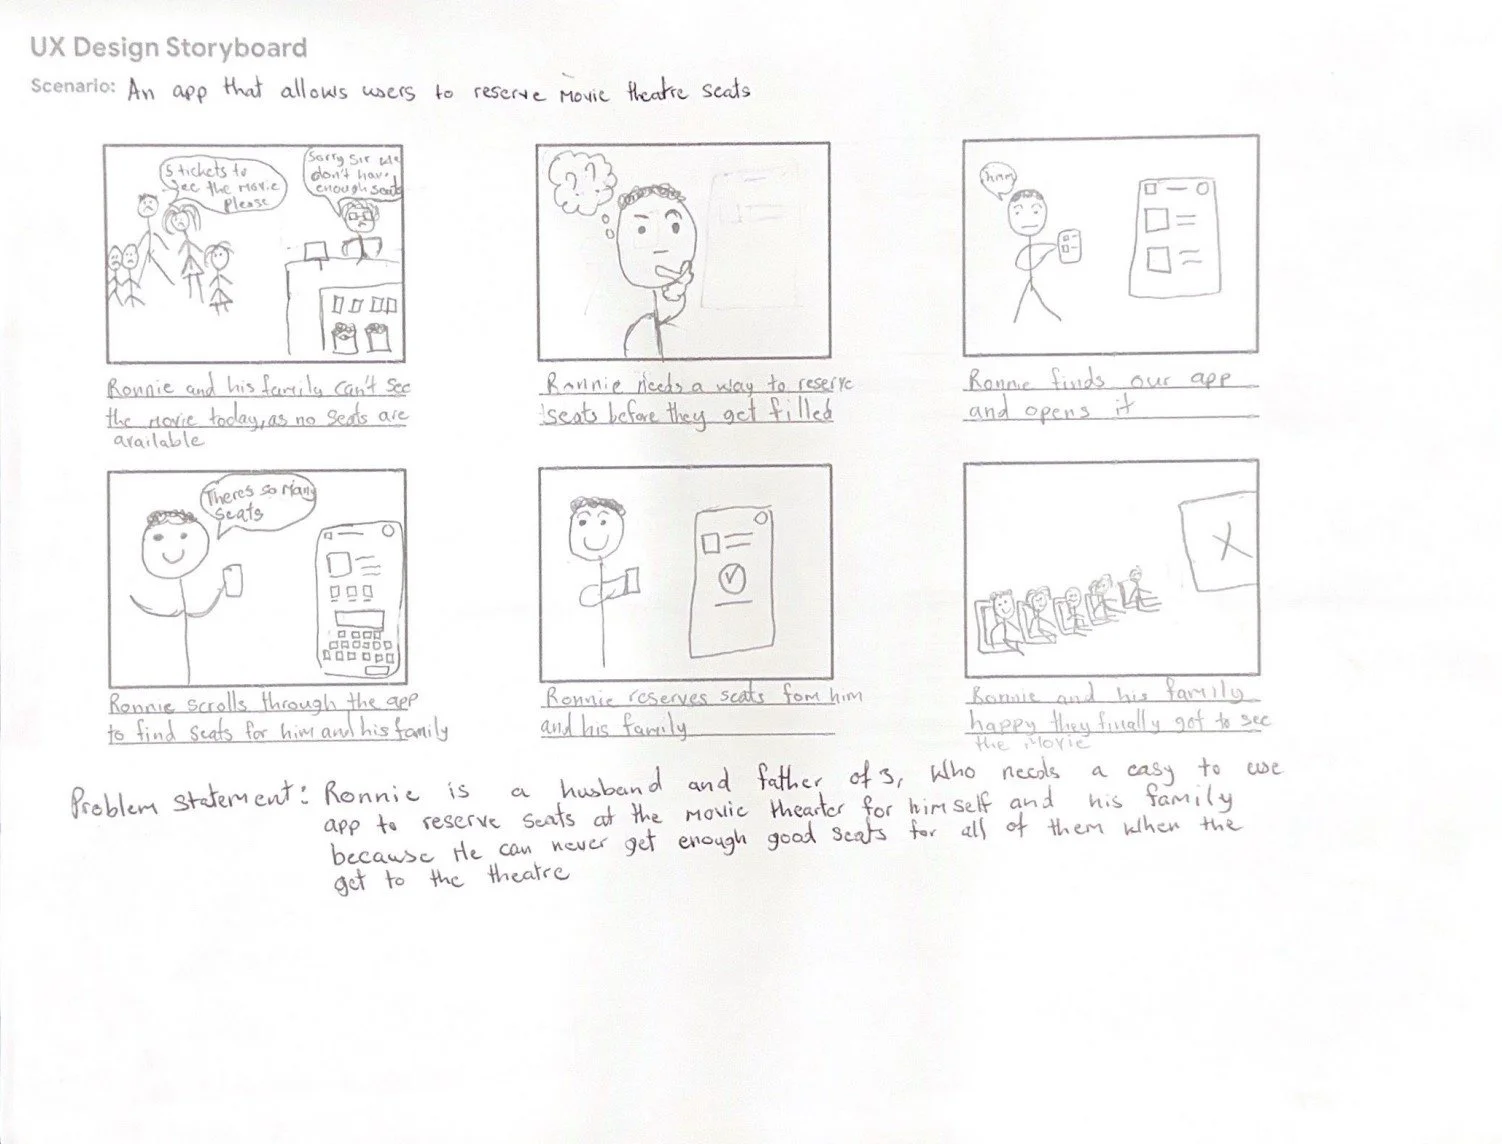 UX Design Storyboard
Scenario: An app that allows users to reserve Movie theatre seats
5 tickets to
see the movie
Please
Sorry Sir we
don't have
enough seats
Ronnie and his family can't see
the movie today, as no seats are
available
??
Ronnie needs a way to reserve
seats before they get filled
hmm
Ronnie finds our app
and opens it
Theres so Many
seats
Ronnie scrolls through the app
to find seats for him and his family
Ronnie reserves seats fom him
and his family
X
Ronnie and his family
happy they finally got to see
the Movie
Problem statement: Ronnie is a husband and father of 3, Who needs a easy to use
app to reserve seats at the movie thearter for himself and his family
because He can never get enough good seats for all of them when the
get to the theatre